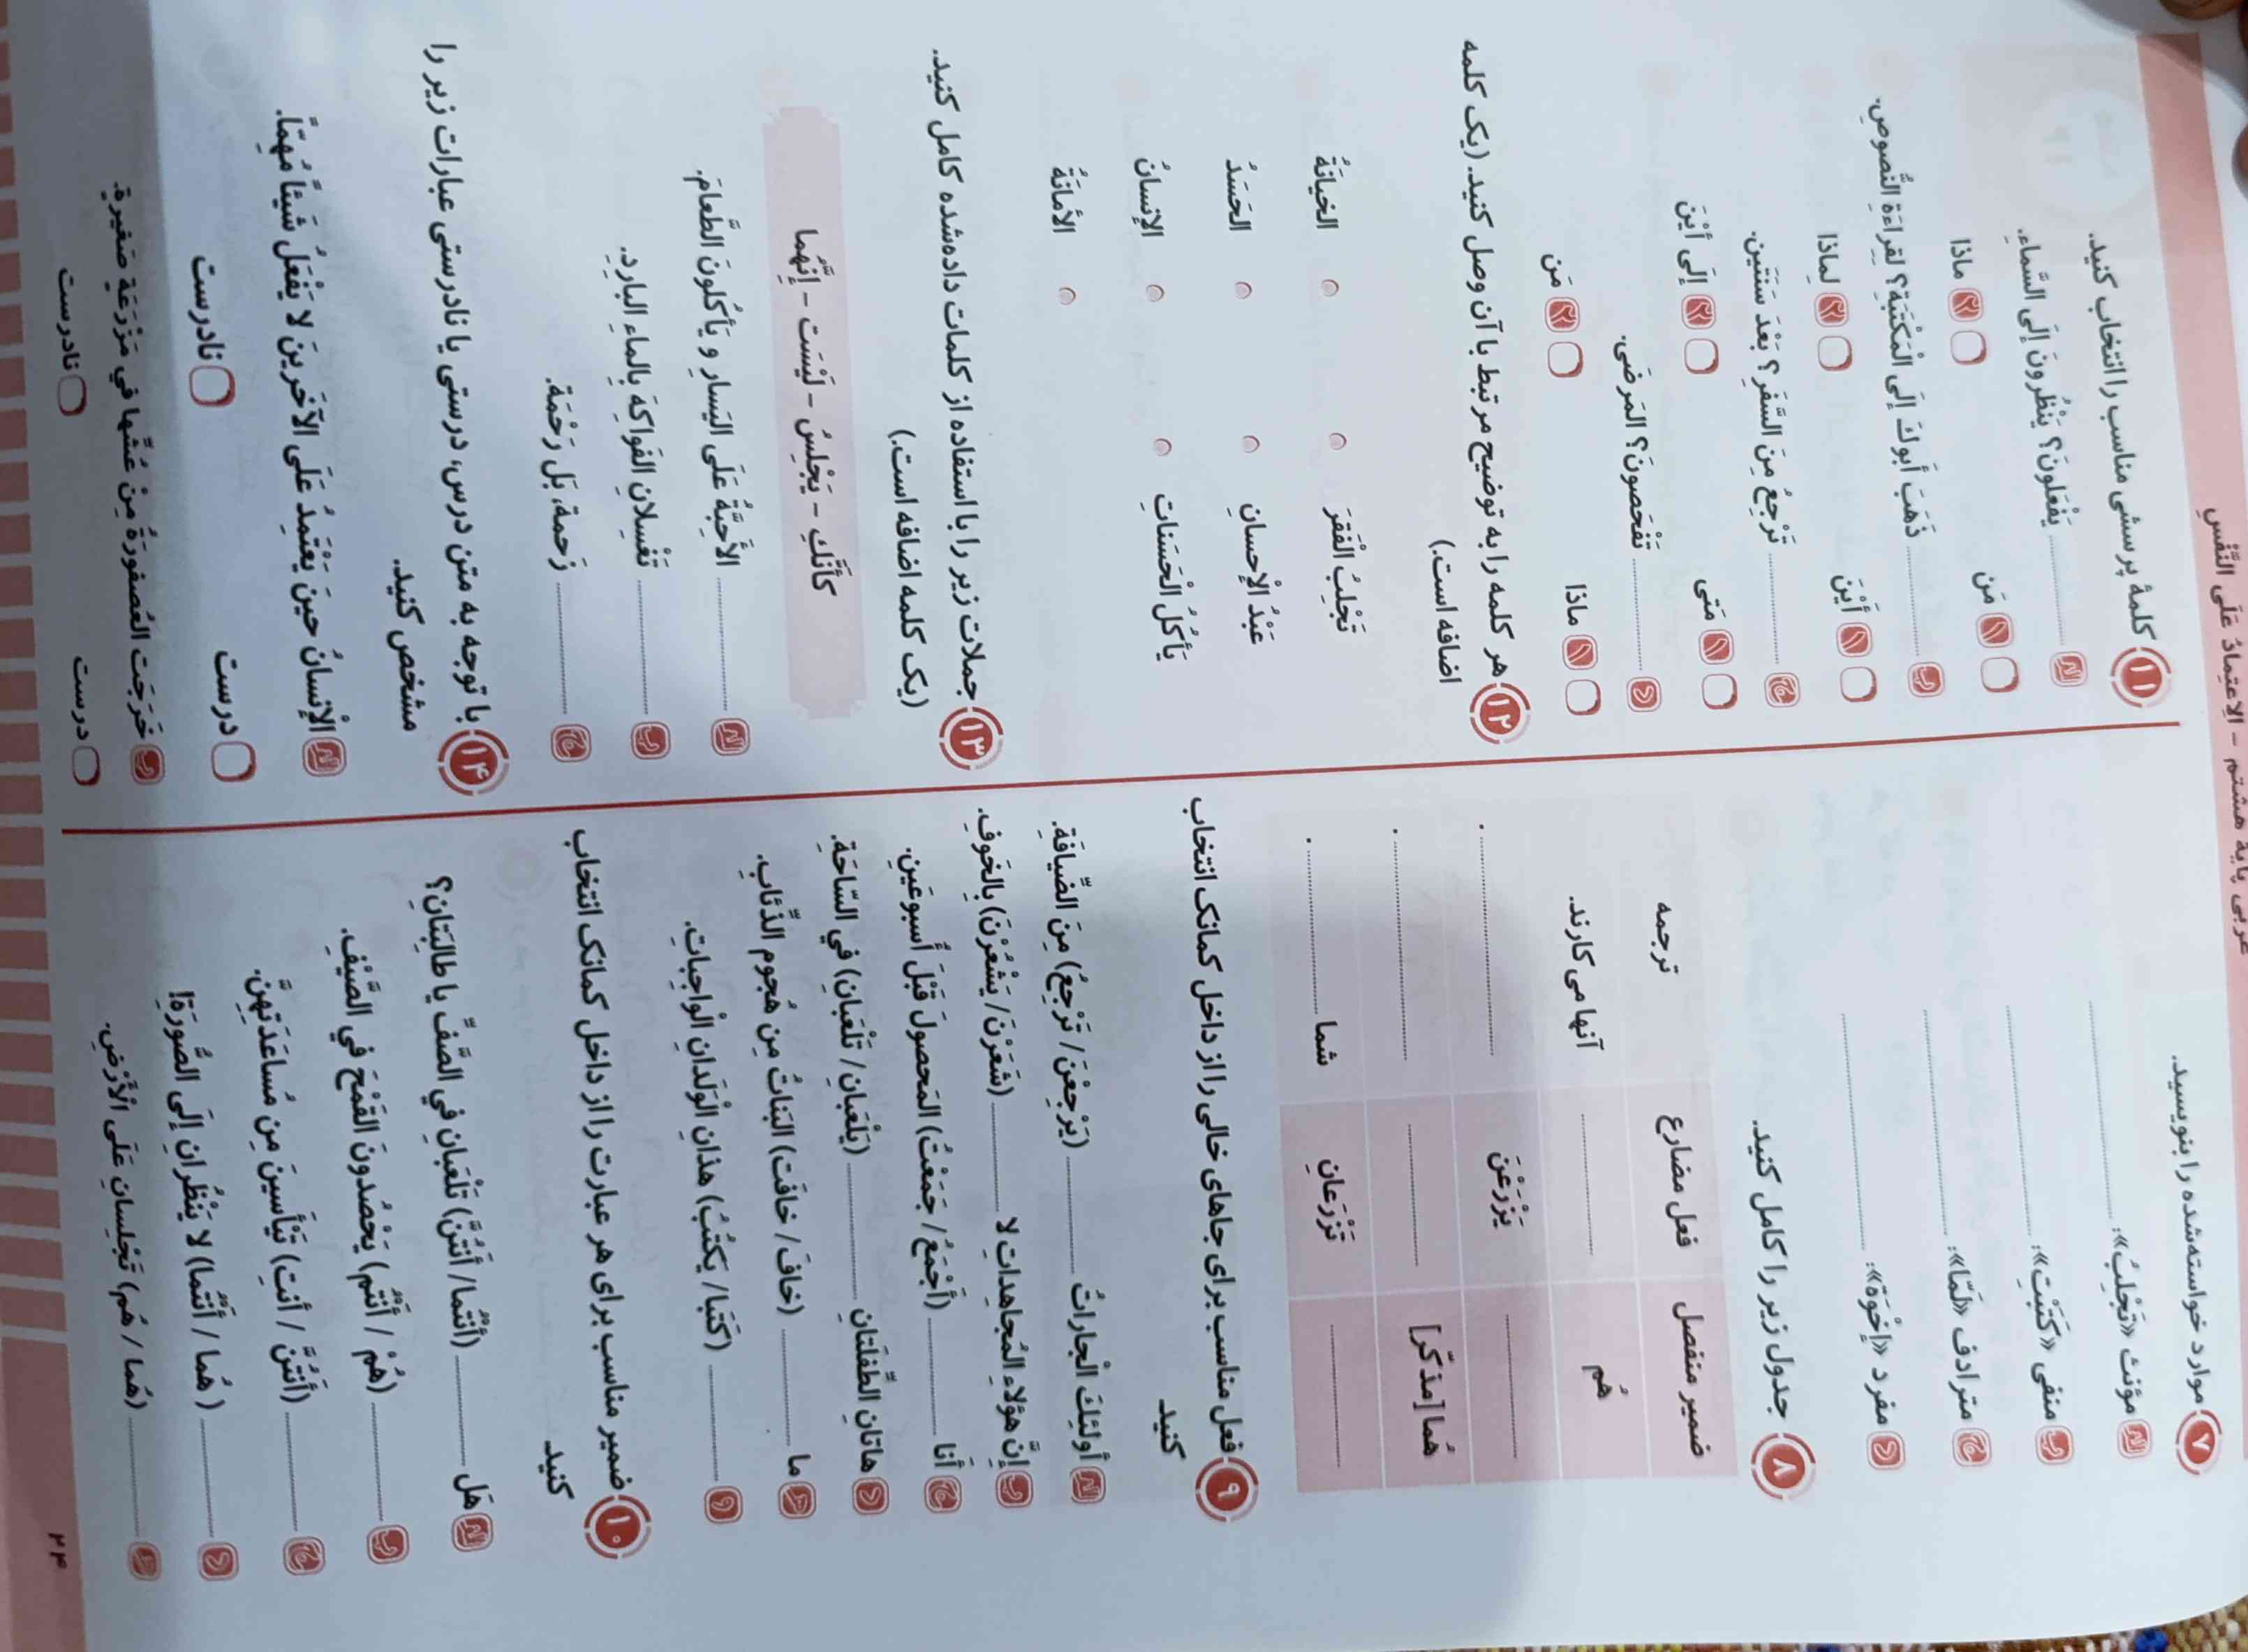 عربی پایهٔ هشتم - الاعتِمادُ عَلَی النَّفْسِ
۷ موارد خواسته‌شده را بنویسید.
الف مؤنث «تَجْلِبُ»: ..........
ب منفی «كَتَبْتِ»: ..........
ج مترادف «لَمّا»: ..........
د مفرد «إخْوَة»: ..........
۸ جدول زیر را کامل کنید.
ضمیر منفصل فعل مضارع ترجمه
هُم .......... آنها می‌کارند.
.......... يَزْرَعْنَ ..........
هُما [مذکّر] .......... ..........
.......... تَزْرَعانِ شما ..........
۹ فعل مناسب برای جاهای خالی را از داخل کمانک انتخاب
کنید
الف أولئِكَ الْجاراتُ .......... (يَرْجِعْنَ / تَرْجِعُ) مِنَ الضِّيافَةِ.
ب إنَّ هؤلاءِ المُجاهِداتِ لا .......... (شَعَرْنَ / يَشْعُرْنَ) بِالخَوفِ.
ج أنا .......... (أَجْمَعُ / جَمَعْتُ) المَحصولَ قَبْلَ أُسبوعَينِ.
د هاتانِ الطِّفلَتانِ .......... (يَلْعَبانِ / تَلْعَبانِ) في السّاحَةِ.
هـ ما .......... (خافَ / خافَت) البَناتُ مِن هُجومِ الذِّئابِ.
و .......... (كَتَبَا / يَكتُبُ) هذانِ الْوَلَدانِ الْواجِباتِ.
۱۰ ضمیر مناسب برای هر عبارت را از داخل کمانک انتخاب
کنید
الف هَل .......... (أنْتُما / أَنتُنَّ) تَلْعَبانِ في الصَّفِّ يا طالِبَتانِ؟
ب .......... (هُمْ / أَنْتُم) يَحْصُدونَ القَمْحَ في الصَّيْفِ.
ج .......... (أَنْتُنَّ / أنتِ) تَيْأَسينَ مِن مُساعَدَتِهِنَّ.
د .......... (هُما / أَنْتُما) لا يَنْظُرانِ إلَى الصُّورَةِ!
هـ .......... (هُما / هُم) تَجْلِسانِ عَلَى الْأَرْضِ.
۱۱ کلمهٔ پرسشی مناسب را انتخاب کنید.
الف .......... يَفْعَلونَ؟ يَنْظُرونَ إلَى السَّماءِ.
۱ مَن ۲ ماذا
ب .......... ذَهَبَ أَبوكَ إلَى الْمَكْتَبَةِ؟ لِقِراءَةِ النُّصوصِ.
۱ أَيْنَ ۲ لِماذا
ج .......... تَرْجِعُ مِنَ السَّفَرِ؟ بَعْدَ سَنَتَينِ.
۱ مَتی ۲ إلَى أَيْنَ
د .......... تَفْحَصونَ؟ المَرضَى.
۱ ماذا ۲ مَن
۱۲ هر کلمه را به توضیح مرتبط با آن وصل کنید. (یک کلمه
اضافه است.)
تَجْلِبُ الْفَقرَ الخيانَةُ
عَبْدُ الْإحسانِ الحَسَدُ
يَأكُلُ الْحَسَناتِ الإنسانُ
الأمانَةُ
۱۳ جملات زیر را با استفاده از کلمات داده‌شده کامل کنید.
(یک کلمه اضافه است.)
كَأنَّكِ - يَجْلِسُ - لَيْسَت - إنَّهُما
الف .......... الأَحِبَّةُ عَلَى اليَسارِ و يَأكُلونَ الطَّعامَ.
ب .......... تَغْسِلانِ الفَواكِهَ بِالماءِ البارِدِ.
ج .......... زَحمة، بَل رَحْمَة.
۱۴ با توجه به متن درس، درستی یا نادرستی عبارات زیر را
مشخص کنید.
الف الْإنسانُ حينَ يَعْتَمِدُ عَلَى الآخَرينَ لا يَفْعَلُ شَيئاً مُهِمّاً.
درست نادرست
ب خَرَجَت العُصفورَةُ مِنْ عُشِّها في مَزْرَعَةٍ صَغيرةٍ.
درست نادرست
۲۴